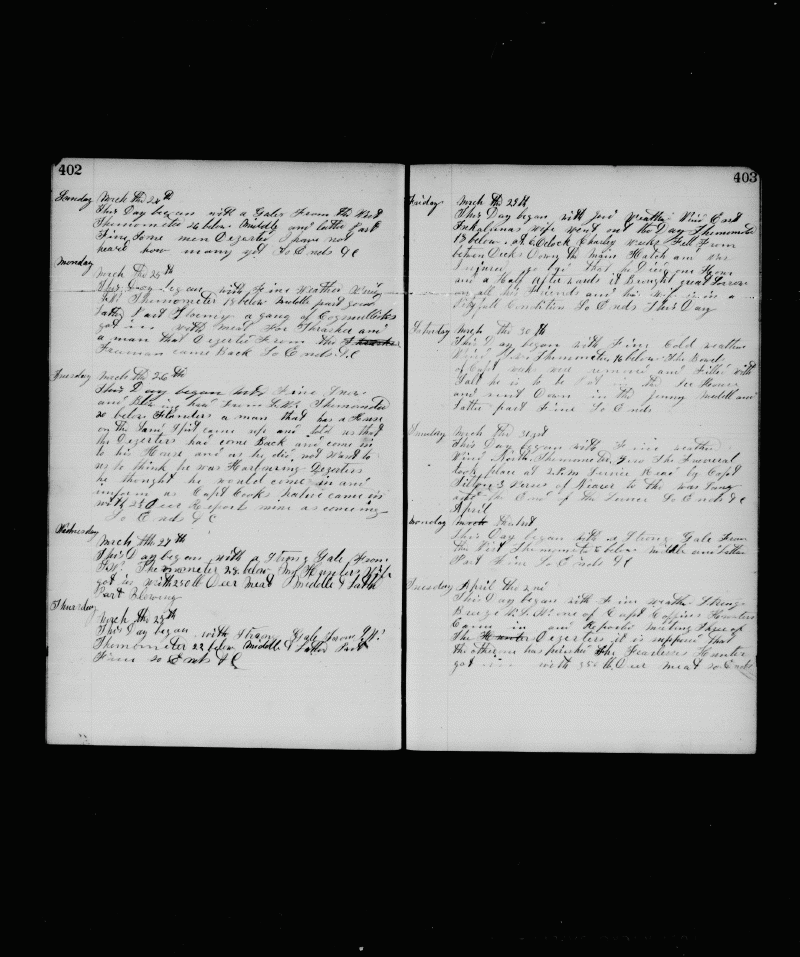 402
Sunday March the 24th
This Day began with a Gale From the West
Thermometer 26 below Middle and latter Part
Fine Some men Deserted I have not
heard how many yet So Ends &C
Monday
March the 25th
This Day began with Fine Weather Wind
Thermometer 18 below Middle part good
latter Part Stormy a gang of Cogmullicks
got in with meat For Thrasher and
a man that Deserted From the
Freeman came Back So Ends &C
Tuesday March the 26th
This Day began with Fine Snow
and Blowing hard From S.W. Thermometer
20 below Flinders a man that has a House
on the Sand Spit came up and told us that
the Deserters had come Back and come in
to his House and as he did not want to
us to think he was Harbouring Deserters
he thought he would come in and
inform us Capt Cooks native came in
with 25 Deer Reports mine as coming
So Ends &C
Wednesday
March the 27th
This Day began with a Strong Gale From
S.W. Thermometer 28 below My Hunters
got in with 2500 lb Deer Meat Middle & latter
Part Blowing
Thursday
March the 28th
This Day began with Strong Gale From S.W.
Thermometer 22 below Middle & Latter Part
Fine So Ends &C
403
Friday March the 29th
This Day began with good weather Wind East
wife went out to Day Thermometer
18 below at O Clock Charley Weeks Fell From
between Decks Down the Main Hatch and was
Injured so bad that he Died one Hour
and a Half Afterwards it Brought great Sorrow
on all his Friends and his wife is in a
Pitifull Condition So Ends This Day
Saturday March the 30th
This Day began with Fine Cold weather
Wind Thermometer 16 below The Bowels
of Capt Weeks were removed and Filled with
Salt he is to be Put in the Ice House
and sent Down in the Jenny Middle and
Latter part Fine So Ends
Sunday March the 31st
This Day began with Fine weather
Wind North Thermometer Zero The Funeral
took place at 2 P.M. Service Read by Capt
3 Verses of Nearer to Thee was Sung
at the End of the Service So Ends &C
April
Monday the 1st
This Day began with a Strong Gale From
the West Thermometer below Middle and latter
Part Fine So Ends &C
Tuesday April the 2nd
This Day began with Fine weather Strong
Breeze one of Capt Coffins Hunters
Came in and Reports meeting three of
the Deserters it is supposed that
the other one has perished The Fearless Hunters
got in with 350 lb Deer meat So Ends